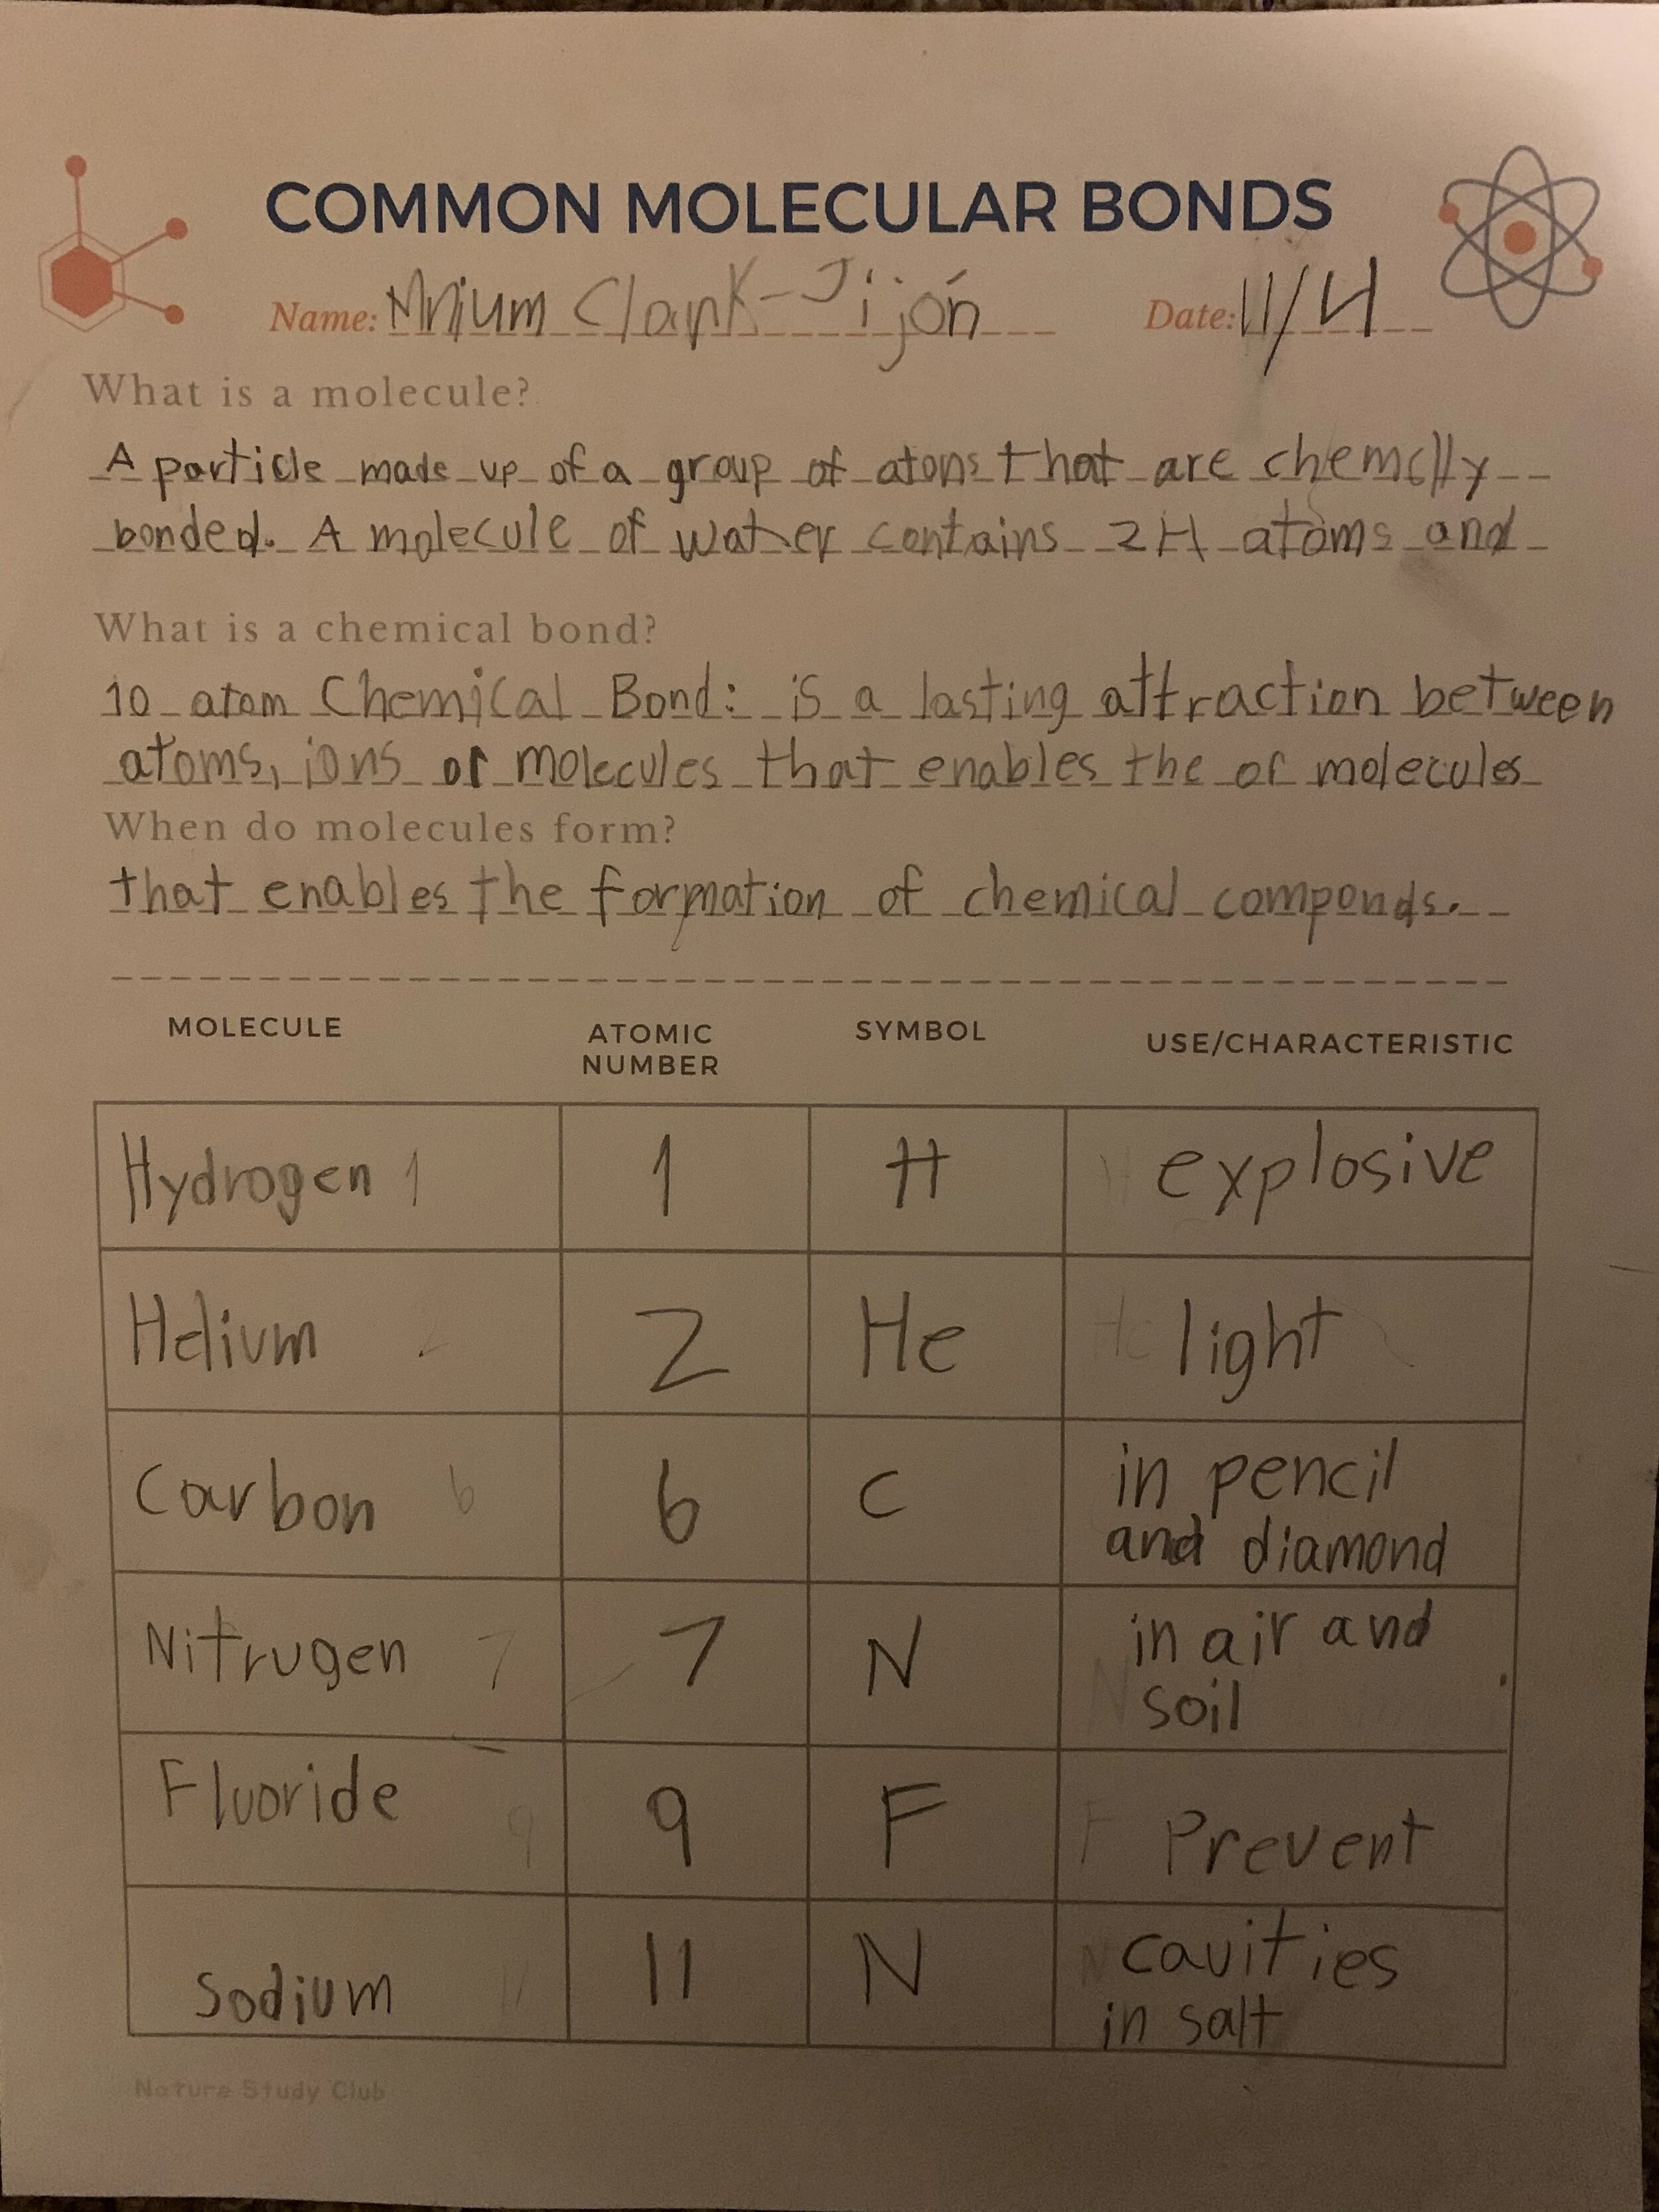 COMMON MOLECULAR BONDS
Name: Clark-Jijón Date: 11/4
What is a molecule?
A particle made up of a group of atons that are chemclly
bonded. A molecule of water contains 2H atoms and
What is a chemical bond?
10 atom Chemical Bond: is a lasting attraction between
atoms, ions or molecules that enables the of molecules
When do molecules form?
that enables the formation of chemical componds.
MOLECULE ATOMIC NUMBER SYMBOL USE/CHARACTERISTIC
Hydrogen 1 1 H H explosive
Helium 2 2 He He light
Carbon 6 6 C in pencil
and diamond
Nitrugen 7 7 N N in air and
soil
Fluoride 9 9 F F Prevent
Sodium 11 11 N N cavities
in salt
Nature Study Club